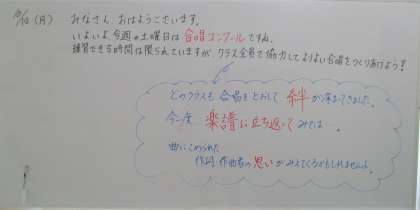 10/12(月) みなさん、おはようございます。
いよいよ今週の土曜日は合唱コンクールですね。
練習できる時間は限られていますが、クラス全員で協力してよりよい合唱をつくりあげよう!
どのクラスも合唱をとおして絆が深まってきました。
今一度楽譜に立ち返ってみては…。
曲にこめられた
作詞、作曲者の思いがみえてくるかもしれませんよ。